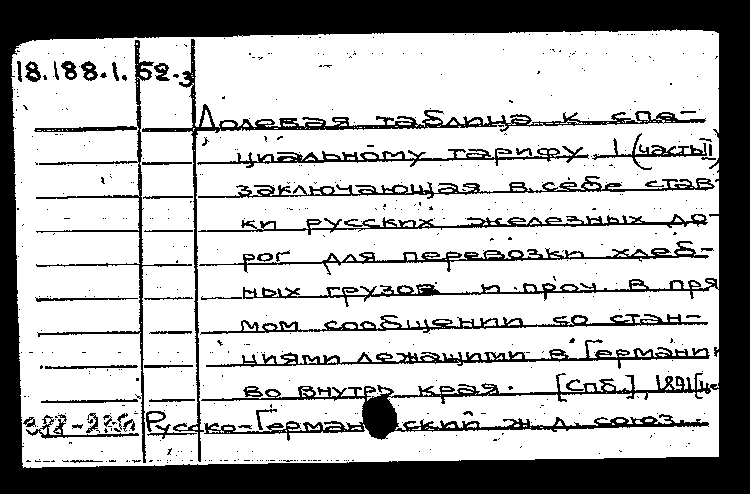 18.188.1.52.з
Долевая таблица к спе-
циальному тарифу I (часть II)
заключающая в себе став-
ки русских железных до-
рог для перевозки хлеб-
ных грузов и проч. в пря
мом сообщении со стан-
циями лежащими в Германии
во внутрь края. [Спб.], 1891
Русско-Германский ж. д. союз.